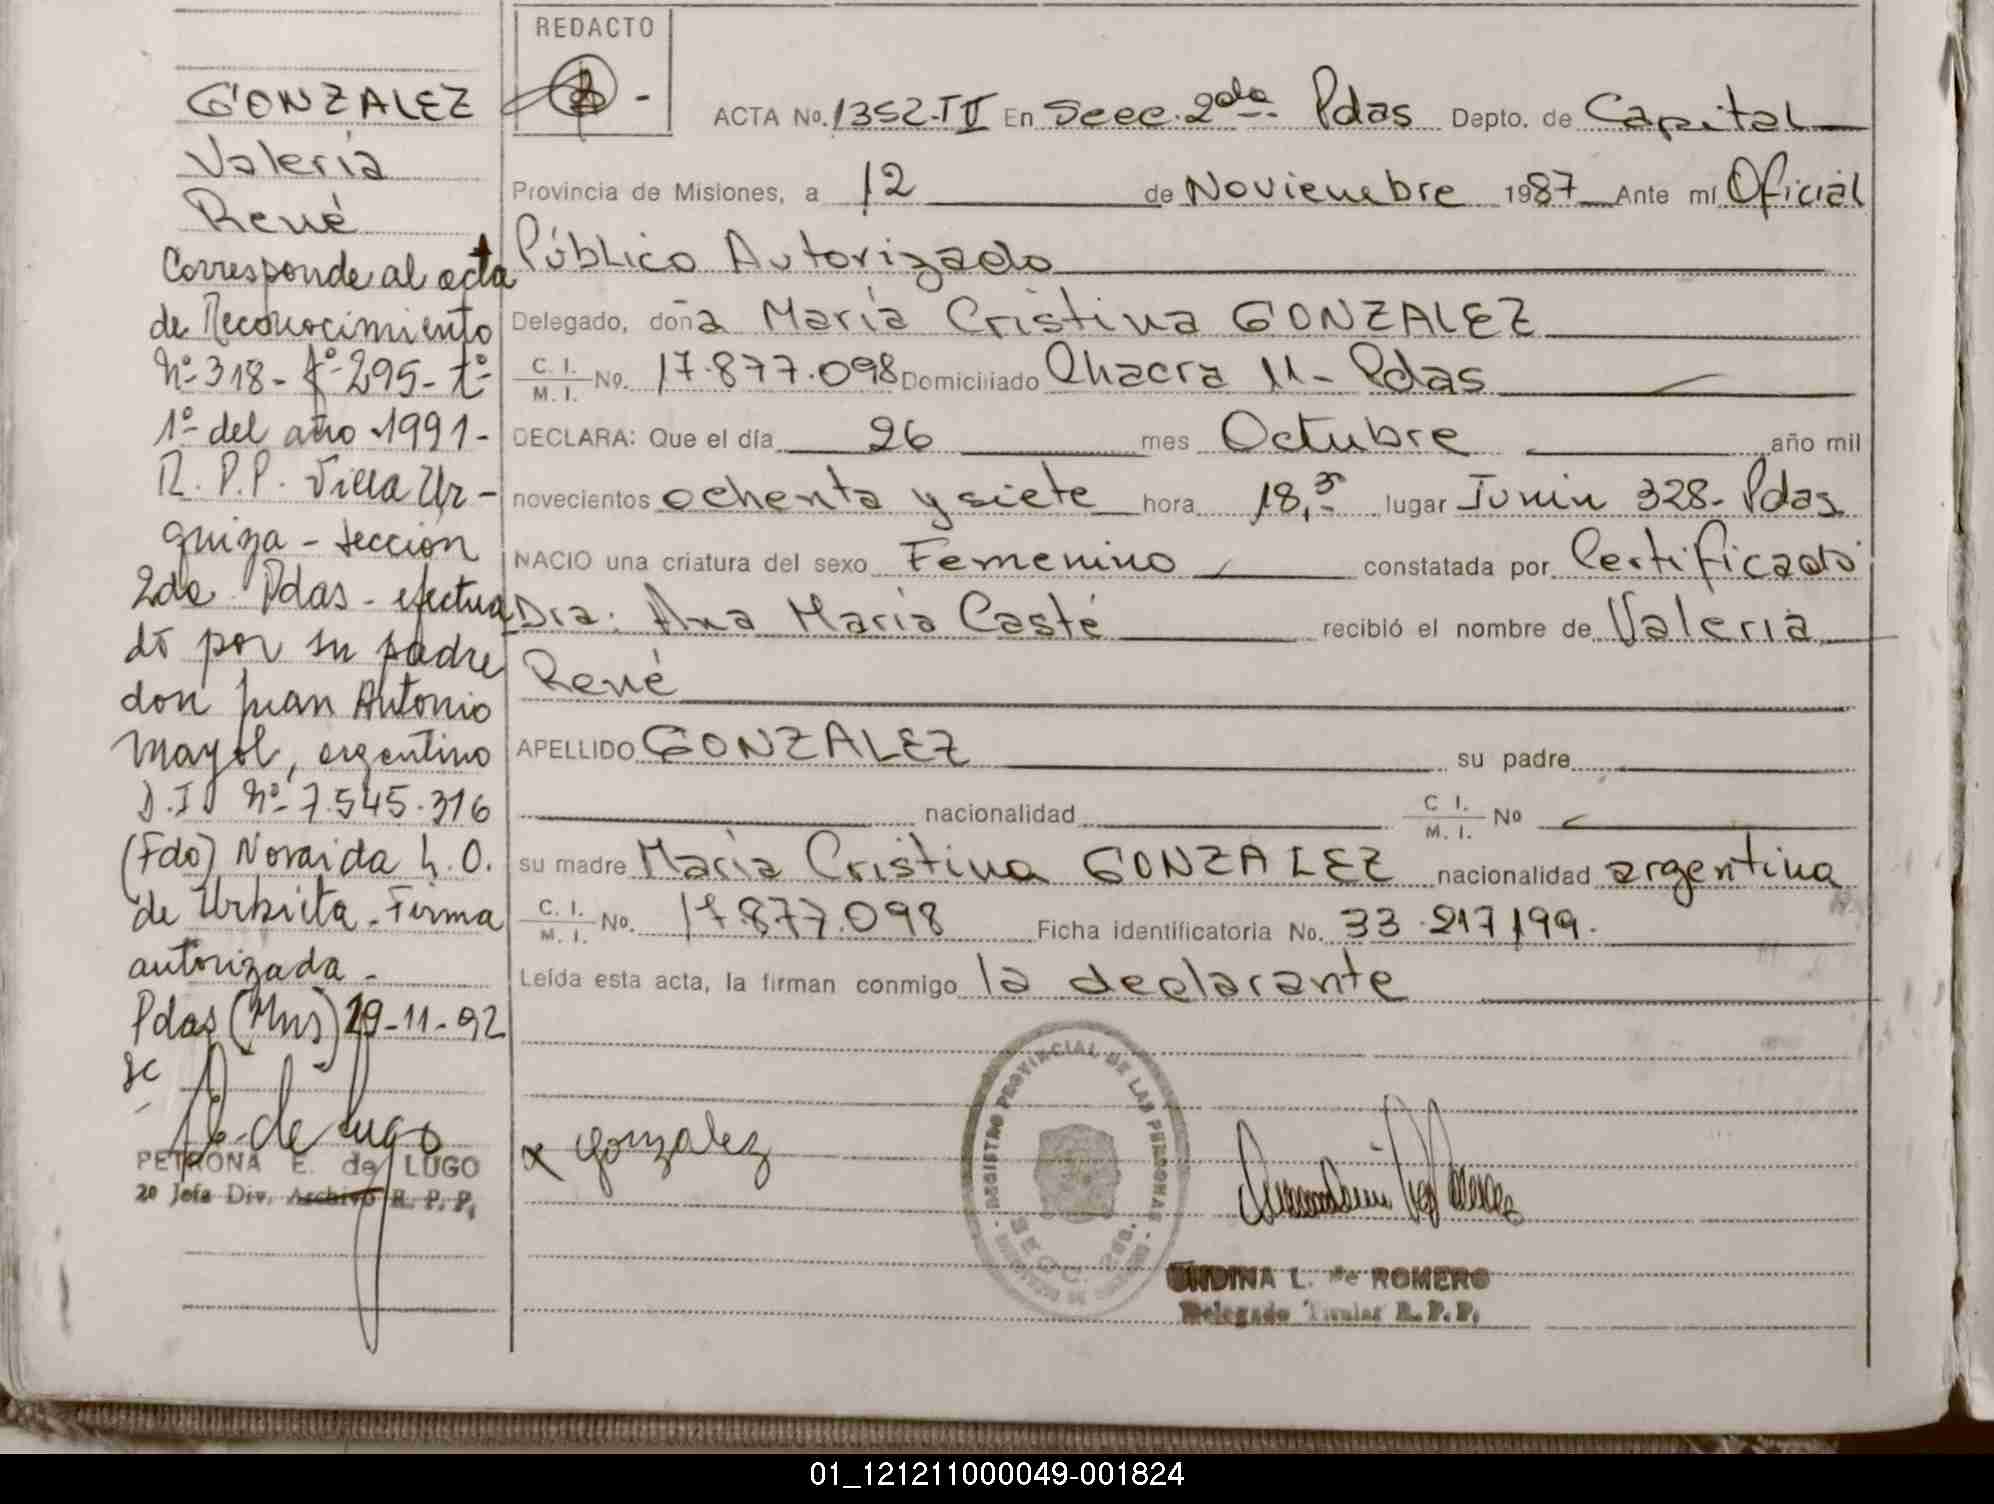 GONZALEZ
Valeria
René
Corresponde al acta
de Reconocimiento
Nº 318 - fº 295 - tº
1º del año 1991 -
R. P. P. Villa Ur-
quiza - sección
2da Pdas - efectua
do por su padre
don Juan Antonio
Mayol, argentino
D.I Nº 7.545.316
(Fdo) Noraida L. O.
de Urbieta. Firma
autorizada -
Pdas (Mns) 19-11-92
P. E. de Lugo
PETRONA E. de LUGO
2º Jefa Div. Archivo R. P. P.
REDACTO
ACTA No. 1352-TII En Secc. 2da Pdas Depto. de Capital
Provincia de Misiones, a 12 de Noviembre 1987 Ante mí Oficial
Público Autorizado
Delegado, doña María Cristina GONZALEZ
C. I. / M. I. No. 17.877.098 Domiciliado Chacra 11 - Pdas
DECLARA: Que el día 26 mes Octubre año mil
novecientos ochenta y siete hora 18,35 lugar Junín 328 - Pdas
NACIO una criatura del sexo Femenino constatada por Certificado
Dra. Ana María Casté recibió el nombre de Valeria
René
APELLIDO GONZALEZ su padre
nacionalidad C I. / M. I. No
su madre María Cristina GONZALEZ nacionalidad argentina
C. I. / M. I. No. 17.877.098 Ficha identificatoria No. 33.217.199.
Leída esta acta, la firman conmigo la declarante
x Gonzalez
REGISTRO PROVINCIAL DE LAS PERSONAS
SECC. 2da.
UNDINA L. de ROMERO
Delegado Titular R. P. P.
01_121211000049-001824